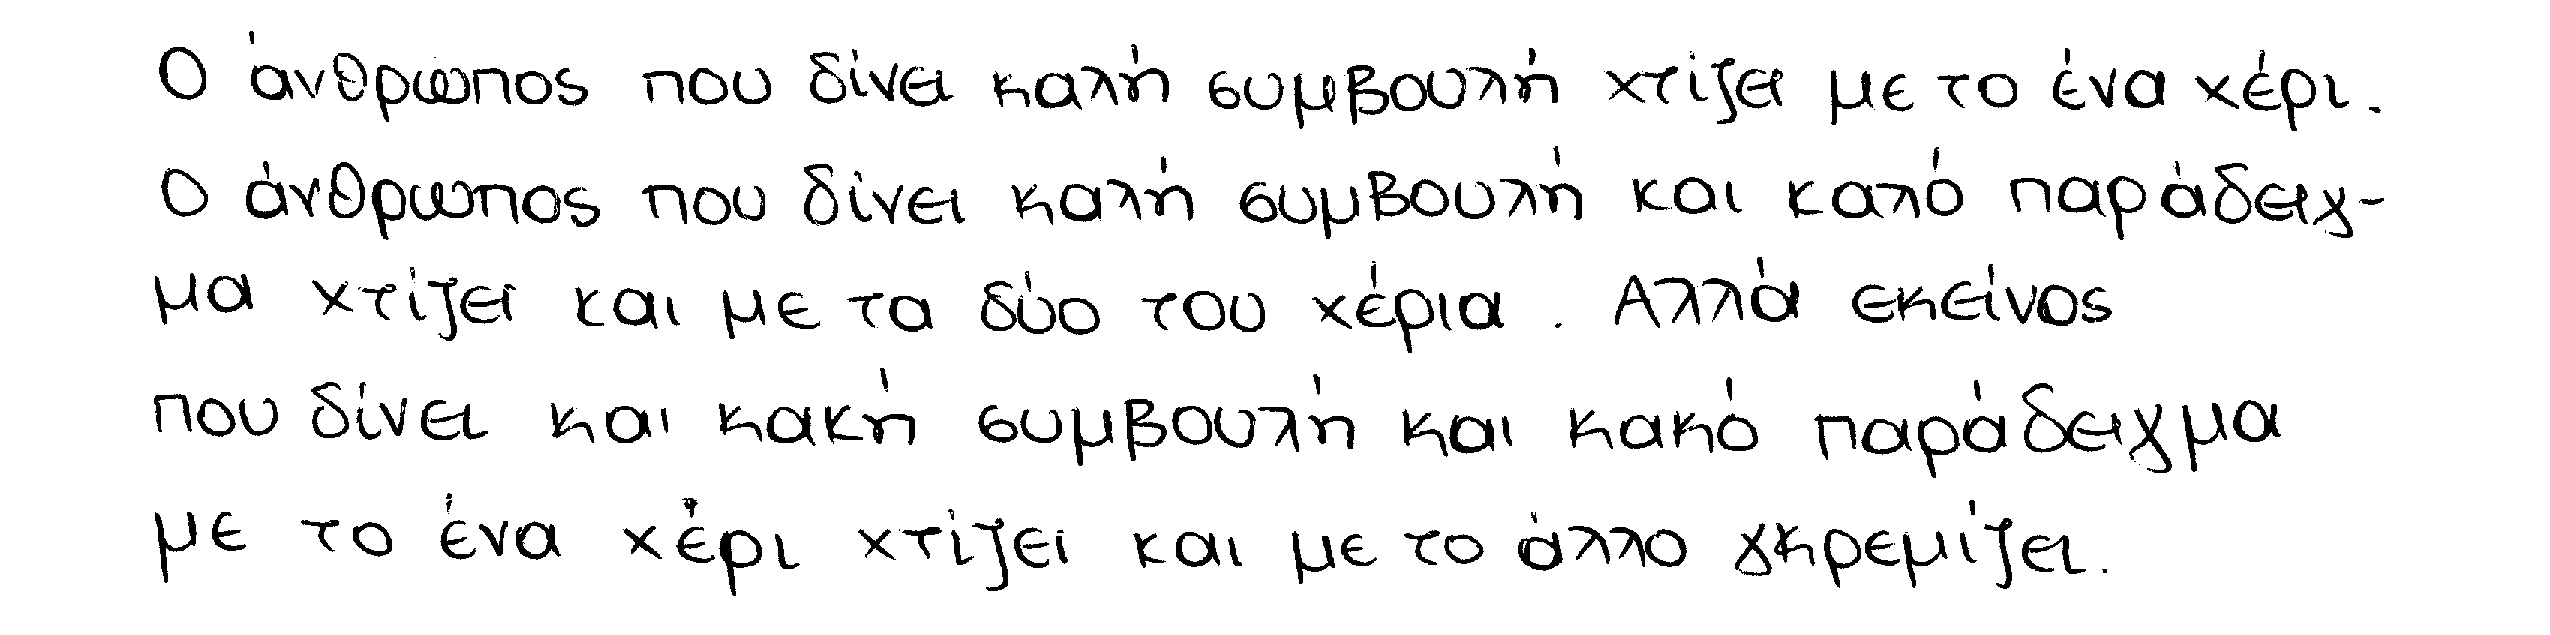 Ο άνθρωπος που δίνει καλή συμβουλή χτίζει με το ένα χέρι.
Ο άνθρωπος που δίνει καλή συμβουλή και καλό παράδειγ-
μα χτίζει και με τα δύο του χέρια. Αλλά εκείνος
που δίνει και κακή συμβουλή και κακό παράδειγμα
με το ένα χέρι χτίζει και με το άλλο γκρεμίζει.